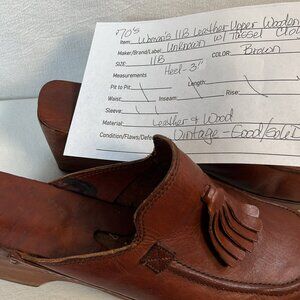 '70's
Item: Women's 11B Leather Upper Wooden
Maker/Brand/Label Unknown w/ Tassel Clog
SIZE: 11B COLOR Brown
Measurements Heel-3"
Pit to Pit: Length:
Waist: Inseam: Rise:
Sleeve:
Material: Leather & Wood
Condition/Flaws/Defe Vintage-Good/Sole D